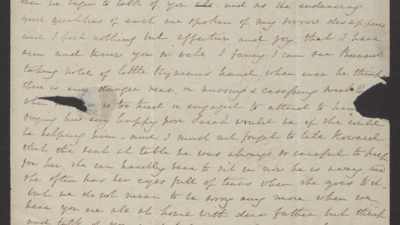 then we begin to talk of you and as the endearing
good qualities of each are spoken of my sorrow disappears
and I feel nothing but affection and joy that I have
seen and knew you so well. I fancy I can see
taking hold of little hand when ever he thinks
there is any danger near, or
when is too tired or engaged to attend to him
saying how very happy poor Sarah would be if she could
be helping him. and I must not forget to tell
that the seat at table he was always so careful to keep
for her she can hardly bear to sit in now he is away, and
she often has her eyes full of tears when she goes to it.
but we do not mean to be sorry any more when we
hear you are all at home with dear father but think
and talk of you